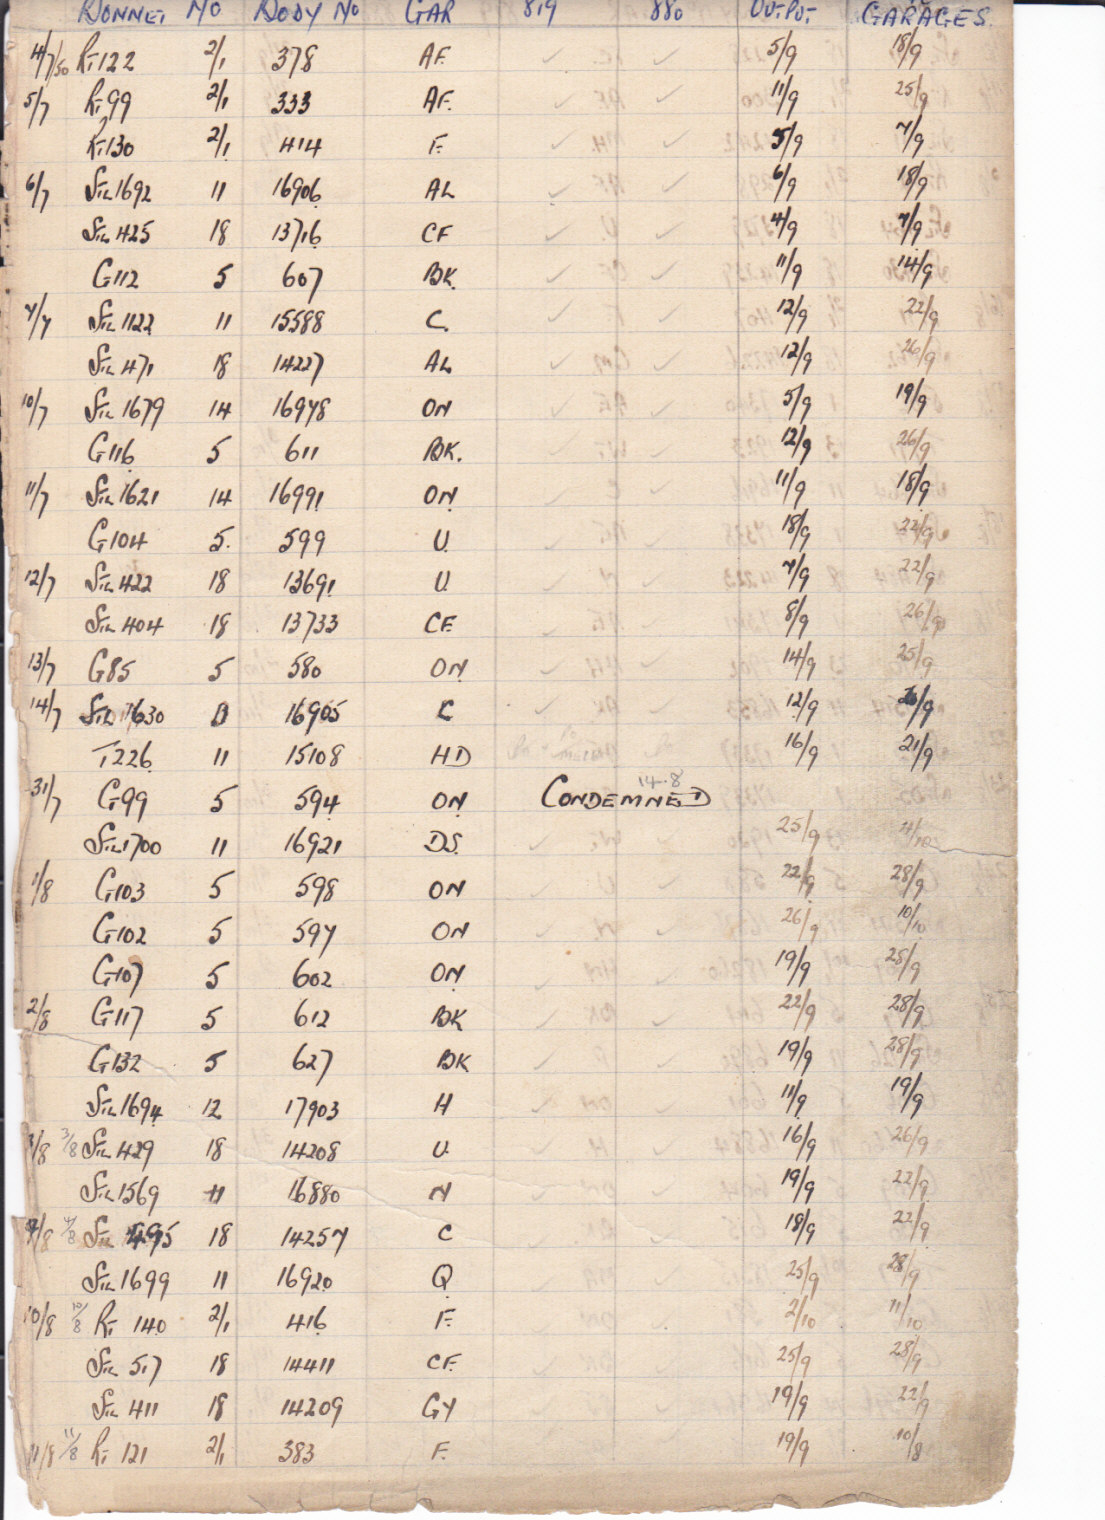 BONNET NO BODY NO GAR 819 880 OUTPUT GARAGES
4/7/50 RT122 2/1 378 AF. 5/9 18/9
5/7 RT99 2/1 333 AF. 11/9 25/9
RT130 2/1 414 F. 5/9 7/9
6/7 STL1692 11 16906 AL 6/9 18/9
STL425 18 13716 CF 4/9 7/9
G112 5 607 BK. 11/9 14/9
7/7 STL1122 11 15588 C. 12/9 22/9
STL471 18 14227 AL 12/9 26/9
10/7 STL1679 14 16948 ON 5/9 19/9
G116 5 611 BK. 12/9 26/9
11/7 STL1621 14 16991 ON 11/9 18/9
G104 5. 599 U. 18/9 22/9
12/7 STL422 18 13691 U. 7/9 22/9
STL404 18 13733 CF. 8/9 26/9
13/7 G85 5 580 ON 14/9 25/9
14/7 STL1630 11 16905 C 12/9 26/9
T226 11 15108 HD 16/9 21/9
31/7 G99 5 594 ON CONDEMNED 14.8
STL1700 11 16921 DS. 25/9 11/10
1/8 G103 5 598 ON 22/9 28/9
G102 5 597 ON 26/9 10/10
G107 5 602 ON 19/9 28/9
2/8 G117 5 612 BK 22/9 28/9
G132 5 627 BK 19/9 28/9
STL1694 12 17903 H 11/9 19/9
3/8 3/8 STL429 18 14208 U. 16/9 26/9
STL1569 11 16880 N 19/9 22/9
4/8 STL 495 18 14257 C 18/9 22/9
STL1699 11 16920 Q 25/9 28/9
10/8 10/8 RT 140 2/1 416 F. 2/10 11/10
STL 517 18 14411 CF. 25/9 28/9
STL 411 18 14209 GY 19/9 22/9
11/8 11/8 RT 121 2/1 383 F. 19/9 10/8